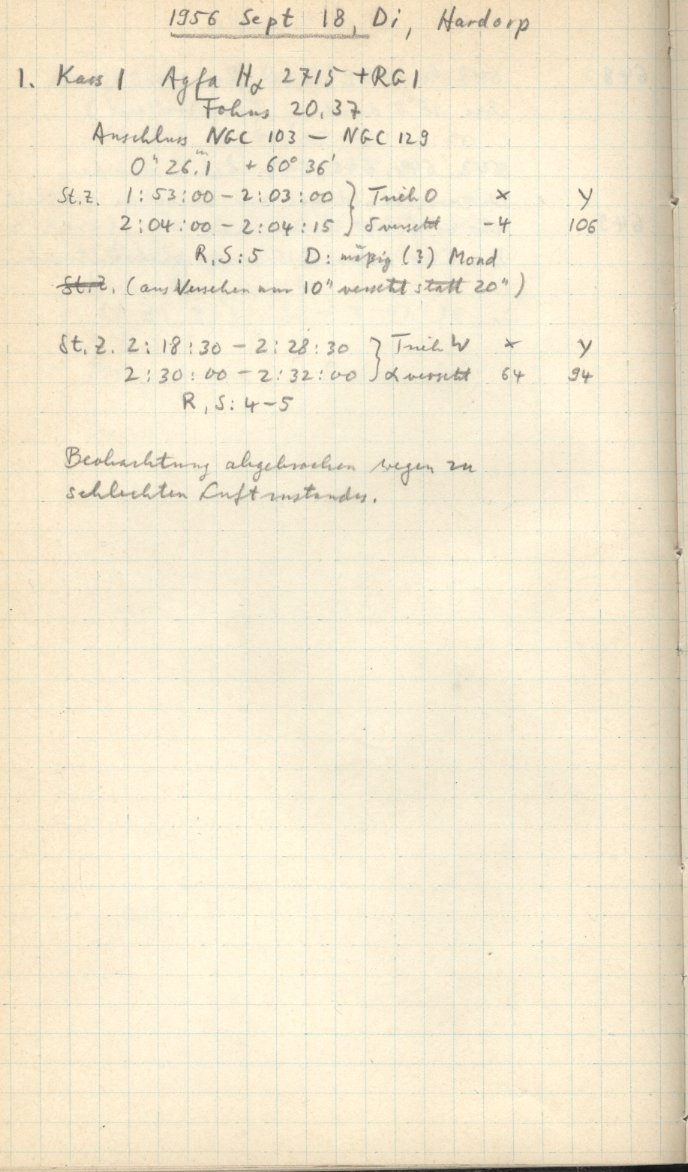 1956 Sept 18, Di, Hardorp
1. Kass 1 Agfa Hα 2715 + RG1
Fokus 20.37
Anschluss NGC 103 – NGC 129
0ʰ 26.ᵐ1 + 60° 36'
St.Z. 1:53:00 – 2:03:00 } Trieb O x y
2:04:00 – 2:04:15 } δ versetzt -4 106
R, S: 5 D: mäßig (3) Mond
St.Z. (aus Versehen nur 10" versetzt statt 20")
St.Z. 2:18:30 – 2:28:30 } Trieb W x y
2:30:00 – 2:32:00 } α versetzt 64 94
R, S: 4–5
Beobachtung abgebrochen wegen zu
schlechten Luftzustandes.